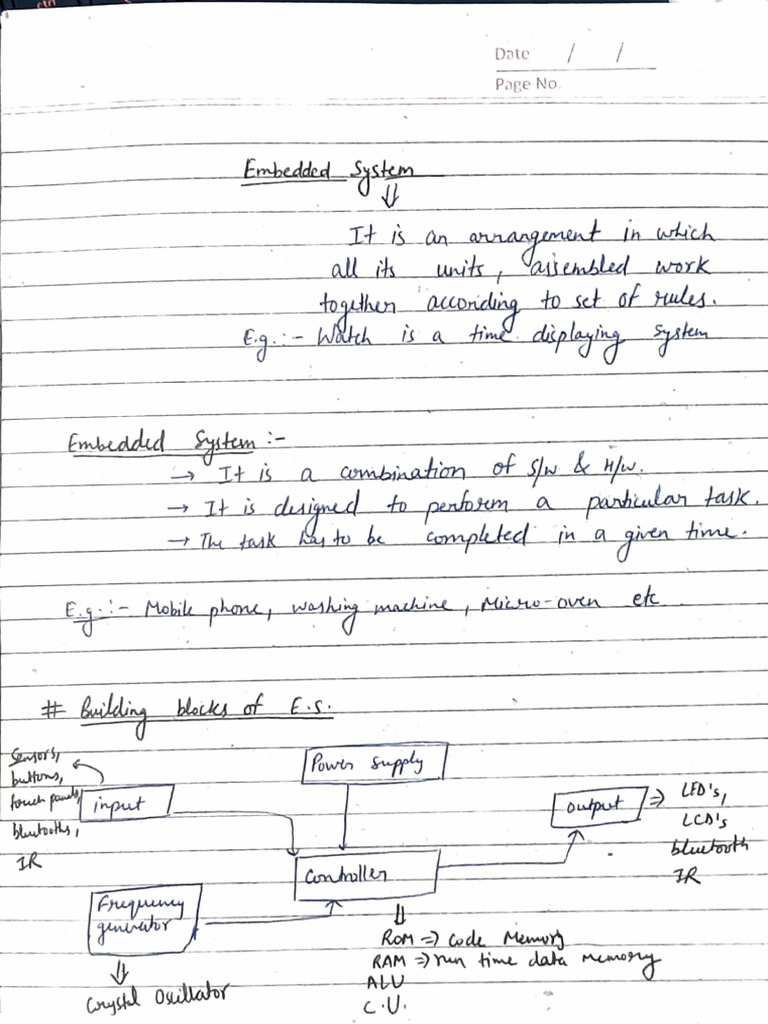 Date / /
Page No.
Embedded System
⇓
It is an arrangement in which
all its units, assembled work
together according to set of rules.
E.g.:- Watch is a time displaying system
Embedded System:-
→ It is a combination of S/W & H/W.
→ It is designed to perform a particular task.
→ The task has to be completed in a given time.
E.g.:- Mobile phone, washing machine, Micro-oven etc
# Building blocks of E.S.
Sensors,
buttons,
touch panels,
bluetooths,
IR
input
Power Supply
output ⇒ LED's,
LCD's
bluetooth
IR
Controller
Frequency
generator
⇓
Crystal Oscillator
⇓
ROM ⇒ Code Memory
RAM ⇒ run time data memory
ALU
C.U.